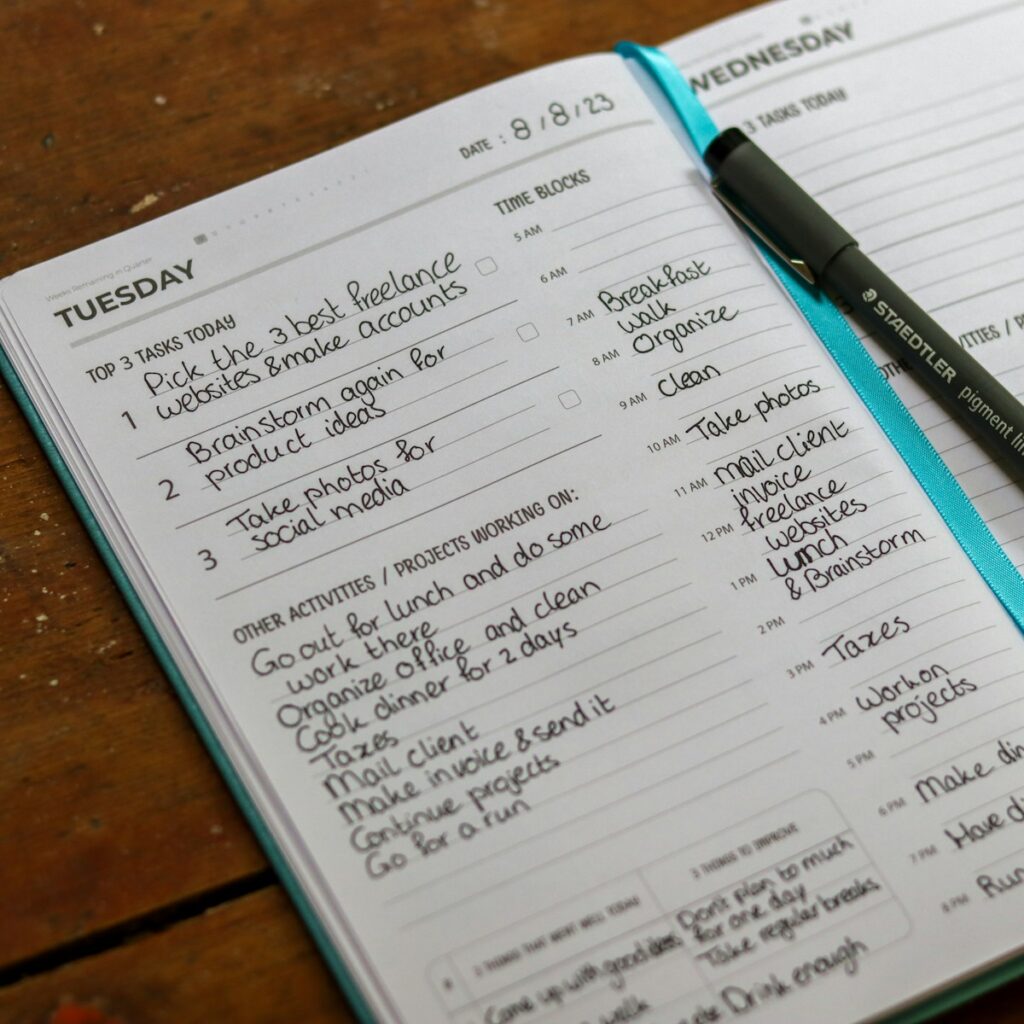 Weeks Remaining in Quarter
TUESDAY
DATE : 8/8/23
TOP 3 TASKS TODAY
1 Pick the 3 best freelance
websites & make accounts
2 Brainstorm again for
product ideas
3 Take photos for
social media
OTHER ACTIVITIES / PROJECTS WORKING ON:
Go out for lunch and do some
work there
Organize office and clean
Cook dinner for 2 days
Taxes
Mail client
Make invoice & send it
Continue projects
Go for a run
TIME BLOCKS
5 AM
6 AM
7 AM Breakfast
walk
8 AM Organize
9 AM clean
10 AM Take photos
11 AM mail client
invoice
12 PM freelance
websites
1 PM lunch
& Brainstorm
2 PM
3 PM Taxes
4 PM work on
projects
5 PM
6 PM Make
7 PM Have
8 PM
3 THINGS THAT WENT WELL TODAY
Came up with good ideas
walk
3 THINGS TO IMPROVE
Don't plan to much
for one day
Take regular breaks
Drink enough
WEDNESDAY
3 TASKS TODAY
STAEDTLER
pigment